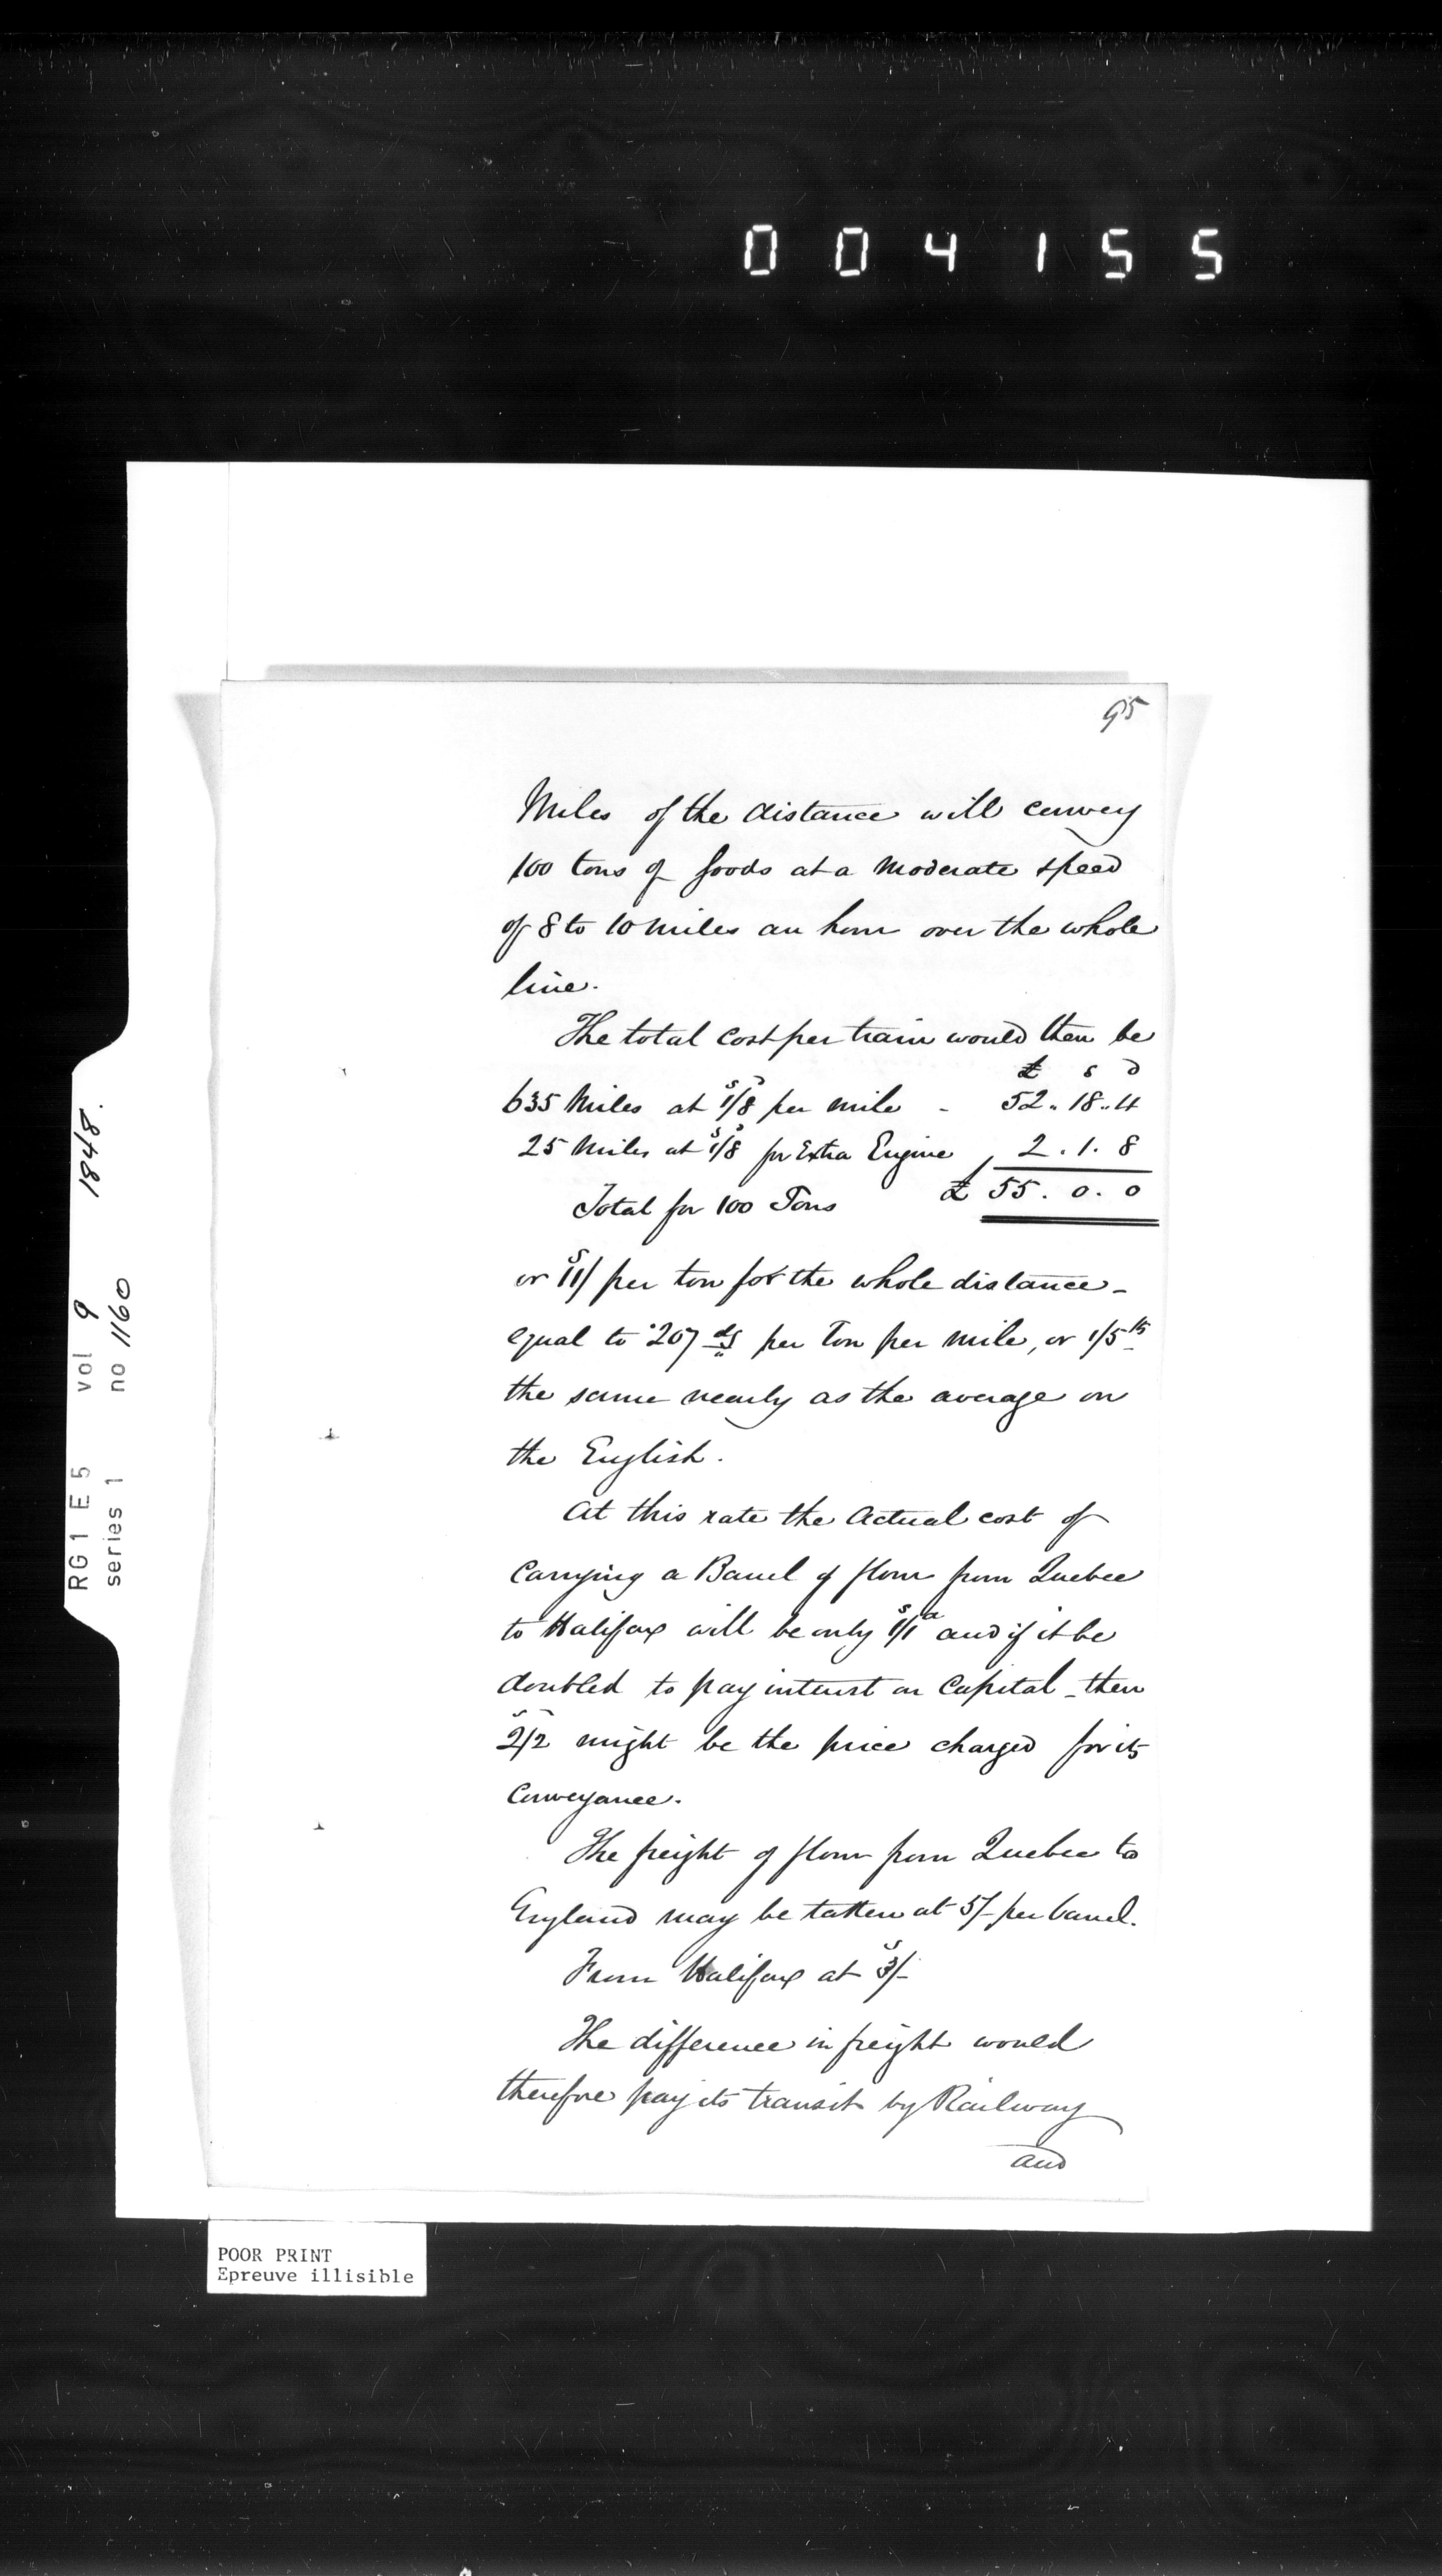 004155
95
Miles of the distance will convey
100 tons of goods at a moderate speed
of 8 to 10 miles an hour over the whole
line.
The total cost per train would then be
£ s d
635 Miles at 1/8 per mile - 52.. 18.. 4
25 Miles at 1/8 for Extra Engine 2. 1. 8
Total for 100 Tons £ 55. 0. 0
or 11/ per ton for the whole distance -
equal to ·207 ds per Ton per mile, or 1/5th
the same nearly as the average on
the English.
At this rate the Actual cost of
Carrying a Barrel of flour from Quebec
to Halifax will be only 1/1d and if it be
doubled to pay interest on Capital - then
2/2 might be the price charged for its
Conveyance.
The freight of flour from Quebec to
England may be taken at 5/- per barrel.
From Halifax at 3/-
The difference in freight would
therefore pay its transit by Railway
and
RG1 E5 vol 9 1848.
series 1 no 1160
POOR PRINT
Epreuve illisible